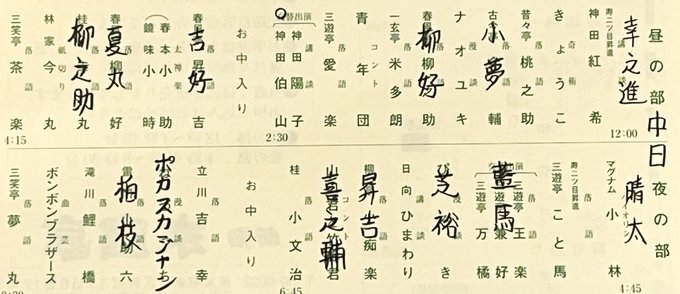 昼の部 中日 夜の部
幸之進
12:00
寿二ツ目昇進
講談
神田紅希
奇術
きょうこ
落語
昔々亭桃之助
小夢
漫談
ナオユキ
柳好
落語
一玄亭米多朗
コント
青年団
落語
三遊亭愛楽
替出演
講談
神田陽子
神田伯山
2:30
お中入り
吉好
落語
春風亭昇吉
太神楽
春本小助
鏡味小時
夏丸
柳之助
紙切り
林家今丸
落語
三笑亭茶楽
4:15
晴太
マグナム小林
4:45
寿二ツ目昇進
落語
三遊亭こと馬
藍馬
三遊亭王楽
三遊亭兼好
三遊亭万橘
芝裕
漫談
講談
日向ひまわり
昇吉
落語
喜之輔
コント
落語
桂小文治
6:45
お中入り
落語
立川吉幸
ポカスカジャン
柏枝
落語
滝川鯉橋
曲芸
ボンボンブラザース
落語
三笑亭夢丸